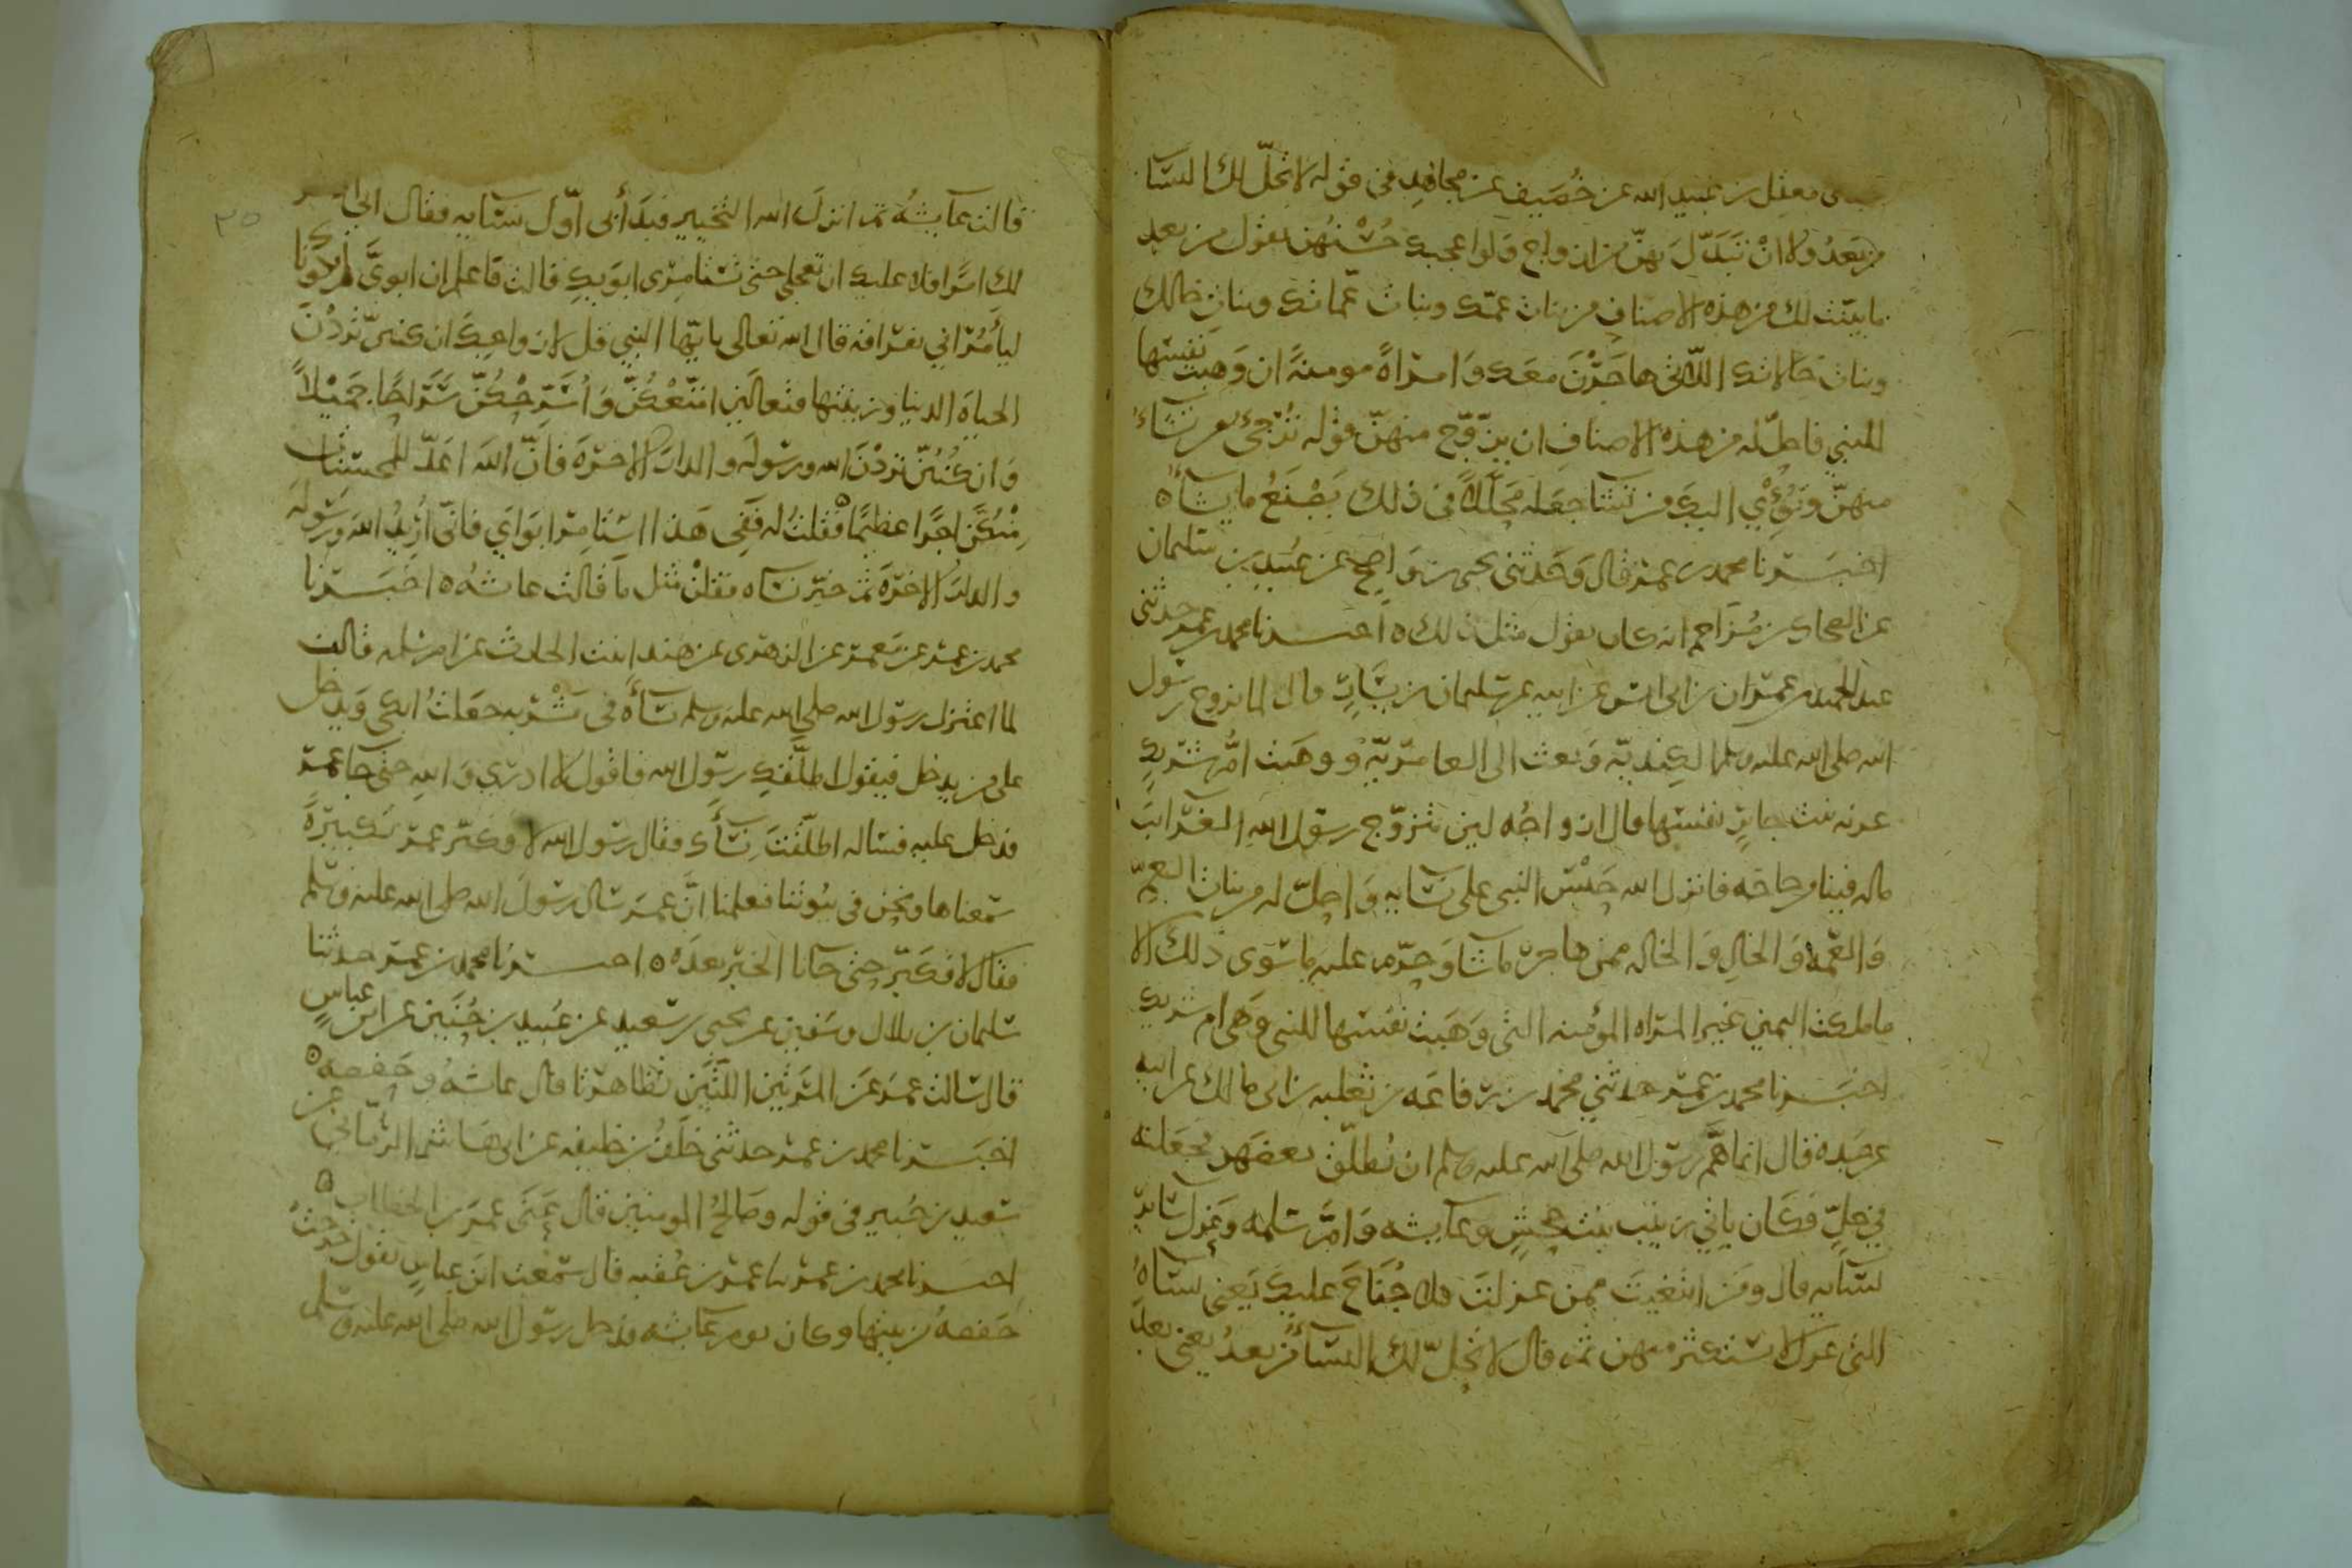 معقل بن عبيد الله عن خُصَيف عن مجاهد في قوله لا تحلّ لك النسآ
من بَعدُ ولا انْ تبَدّلَ بهنّ من ازواج وَلو اعجبك حُسْنُهن يقول من بعد
ما بينت لك من هذه الاصنافِ من بنات عمّك وبنات عمّاتك وبنات خالك
وبنات خالاتك اللاّتي هاجَرْنَ معَك وَامراةً مومنةً ان وَهبت نفسَها
للنبي فاحلّ له من هذه الاصنافِ ان يتزوّج منهنّ قوله تُرْجئ من تشاءُ
منهنّ وتُؤْي اليك من تشآ جعَله مُحَلَّلاً في ذلك يَصْنَعُ ما يشآءُ ه
اخبَرنا محمد بن عمر قال وَحَدثني يحيى بن وَاضح عن عُبيد بن سليمان
عن الضحاك بن مُزَاحم انه كان يقول مثل ذلك ه اخبرنا محمد بن عمر حدثني
عبد الحميد بن عمران بن ابي انس عن ابيه عن سليمان بن يسَارٍ قال لما تزوج رسول
الله صلى الله عليه وسلم الكِنْديّه وَبعث الى العامريّة وَوَهَبت امُّ شريكٍ
غزيه بنت جابرٍ نفسَها قال ازواجُه لين تزوّج رسول الله الغَرايبَ
ماله فينا من حاجَه فانزل الله حَبْس النبي على نسَايه وَاحلّ له من بنات العمّ
وَالعَمّه وَالخالِ وَالخاله ممن هاجرَ ما شا وَحرّم عليه ما سوى ذلك الا
ما ملكت اليمين غير المراه المؤمنه التي وَهَبت نفسَها للنبي وَهي ام شريك
اخبَرنا محمد بن عمر حدثني محمد بن رفاعَه بن ثعلبه بن ابي مالك عن ابيه
عن جَده قال انما هَمّ رسول الله صلى الله عليه وسلم ان يُطلّق بعضهن فجَعَلنه
في حلٍّ فكان ياتي زينب بنت جحشٍ وعآيشه وَامّ سلمه وعزل سَاير
نسَآيه قال ومَن ابتغيتَ ممن عزلتَ فلا جُنَاحَ عليك يَعني نسآهُ
التي عزل لا تستكثر منهن ثم قال لا تحلّ لك النسآءُ من بعدُ يعني بعد
٣٥
قالت عآيشهُ ثم انزلَ الله التخيير فبَدَأ بي اوّل نسَآيه فقال اني ذاكر
لك امرًا فلا عليك ان تعجلي حتى تستامري ابوَيكِ قالت قد علم ان ابويَّ لم يكونا
ليأمُراني بفراقه قال الله تعالى يا ايّها النبي قل لازواجك ان كنتنّ تردْنَ
الحياة الدنيا وزينتها فتعالَين امتّعْكُنّ وَاُسَرّحْكُنّ سَرَاحًا جَميْلاً
وَان كُنتُنّ تردْنَ الله ورسُولَه والدارَ الاخرَةَ فانّ اللهَ اعَدّ للمُحسنات
مِنْكُنّ اجرًا عظيمًا فقلتُ له ففي هَذا استامِر ابوَاي فانّي اُرِيدُ اللهَ وَرسُولهَ
والدارَ الاخرَةَ ثم خيّر نسَاه فقلنْ مثل ما قالت عايشهُ ه اخبَرنا
محمد بن عمر عن مَعمر عن الزهري عن هند ابنت الحارث عن ام سلمه قالت
لما اعتزل رسول الله صلى الله عليه وسلم نسآءَه في مَشْرُبه جعَلتُ ابكي وَيدخل
على من يدخل فيقول اطلّقكِ رسول الله فاقول لا ادري وَالله حتى جآ عمر
فدخل عليه فسَاله اطلّقتَ نسآءَك فقال رسول الله لا فكبّر عمر تكبيرَةً
سَمعناها ونحن في بُيُوتنا فعلمنا انّ عمَر سَال رسُولَ الله صلى الله عليه وسَلم
فقال لا فكبّر حتى جآنا الخبَر بعدَه ه اخبرنا محمد بن عمر حدثنا
سليمان بن بلال وسفين عن يحيى بن سعيد عن عُبيد بن حُنَين عن ابن عباسٍ
قال سَالت عمَر عَن المرَتين اللّتَين تظاهرَتا قال عايشهُ وحَفصه ه
اخبَرنا محمد بن عمر حدثني خلَف بن خليفه عن ابي هَاشم الرمّاني عن
سَعيد بن جُبير في قوله وصَالحُ المومنين قال عَنَى عمرَ بن الخطاب ه
اخبرنا محمد بن عمر نا عمر بن عُقبه قال سَمعت ابن عباسٍ يقول خرجتْ
حَفصهُ من بيتها وكان يوم عآيشه فدخل رسول الله صلى الله عليه وسلم